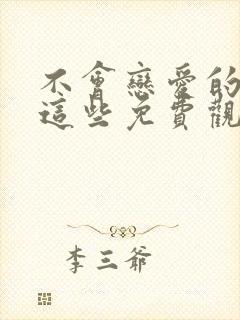 不會戀愛的
這些免費觀
李三爺